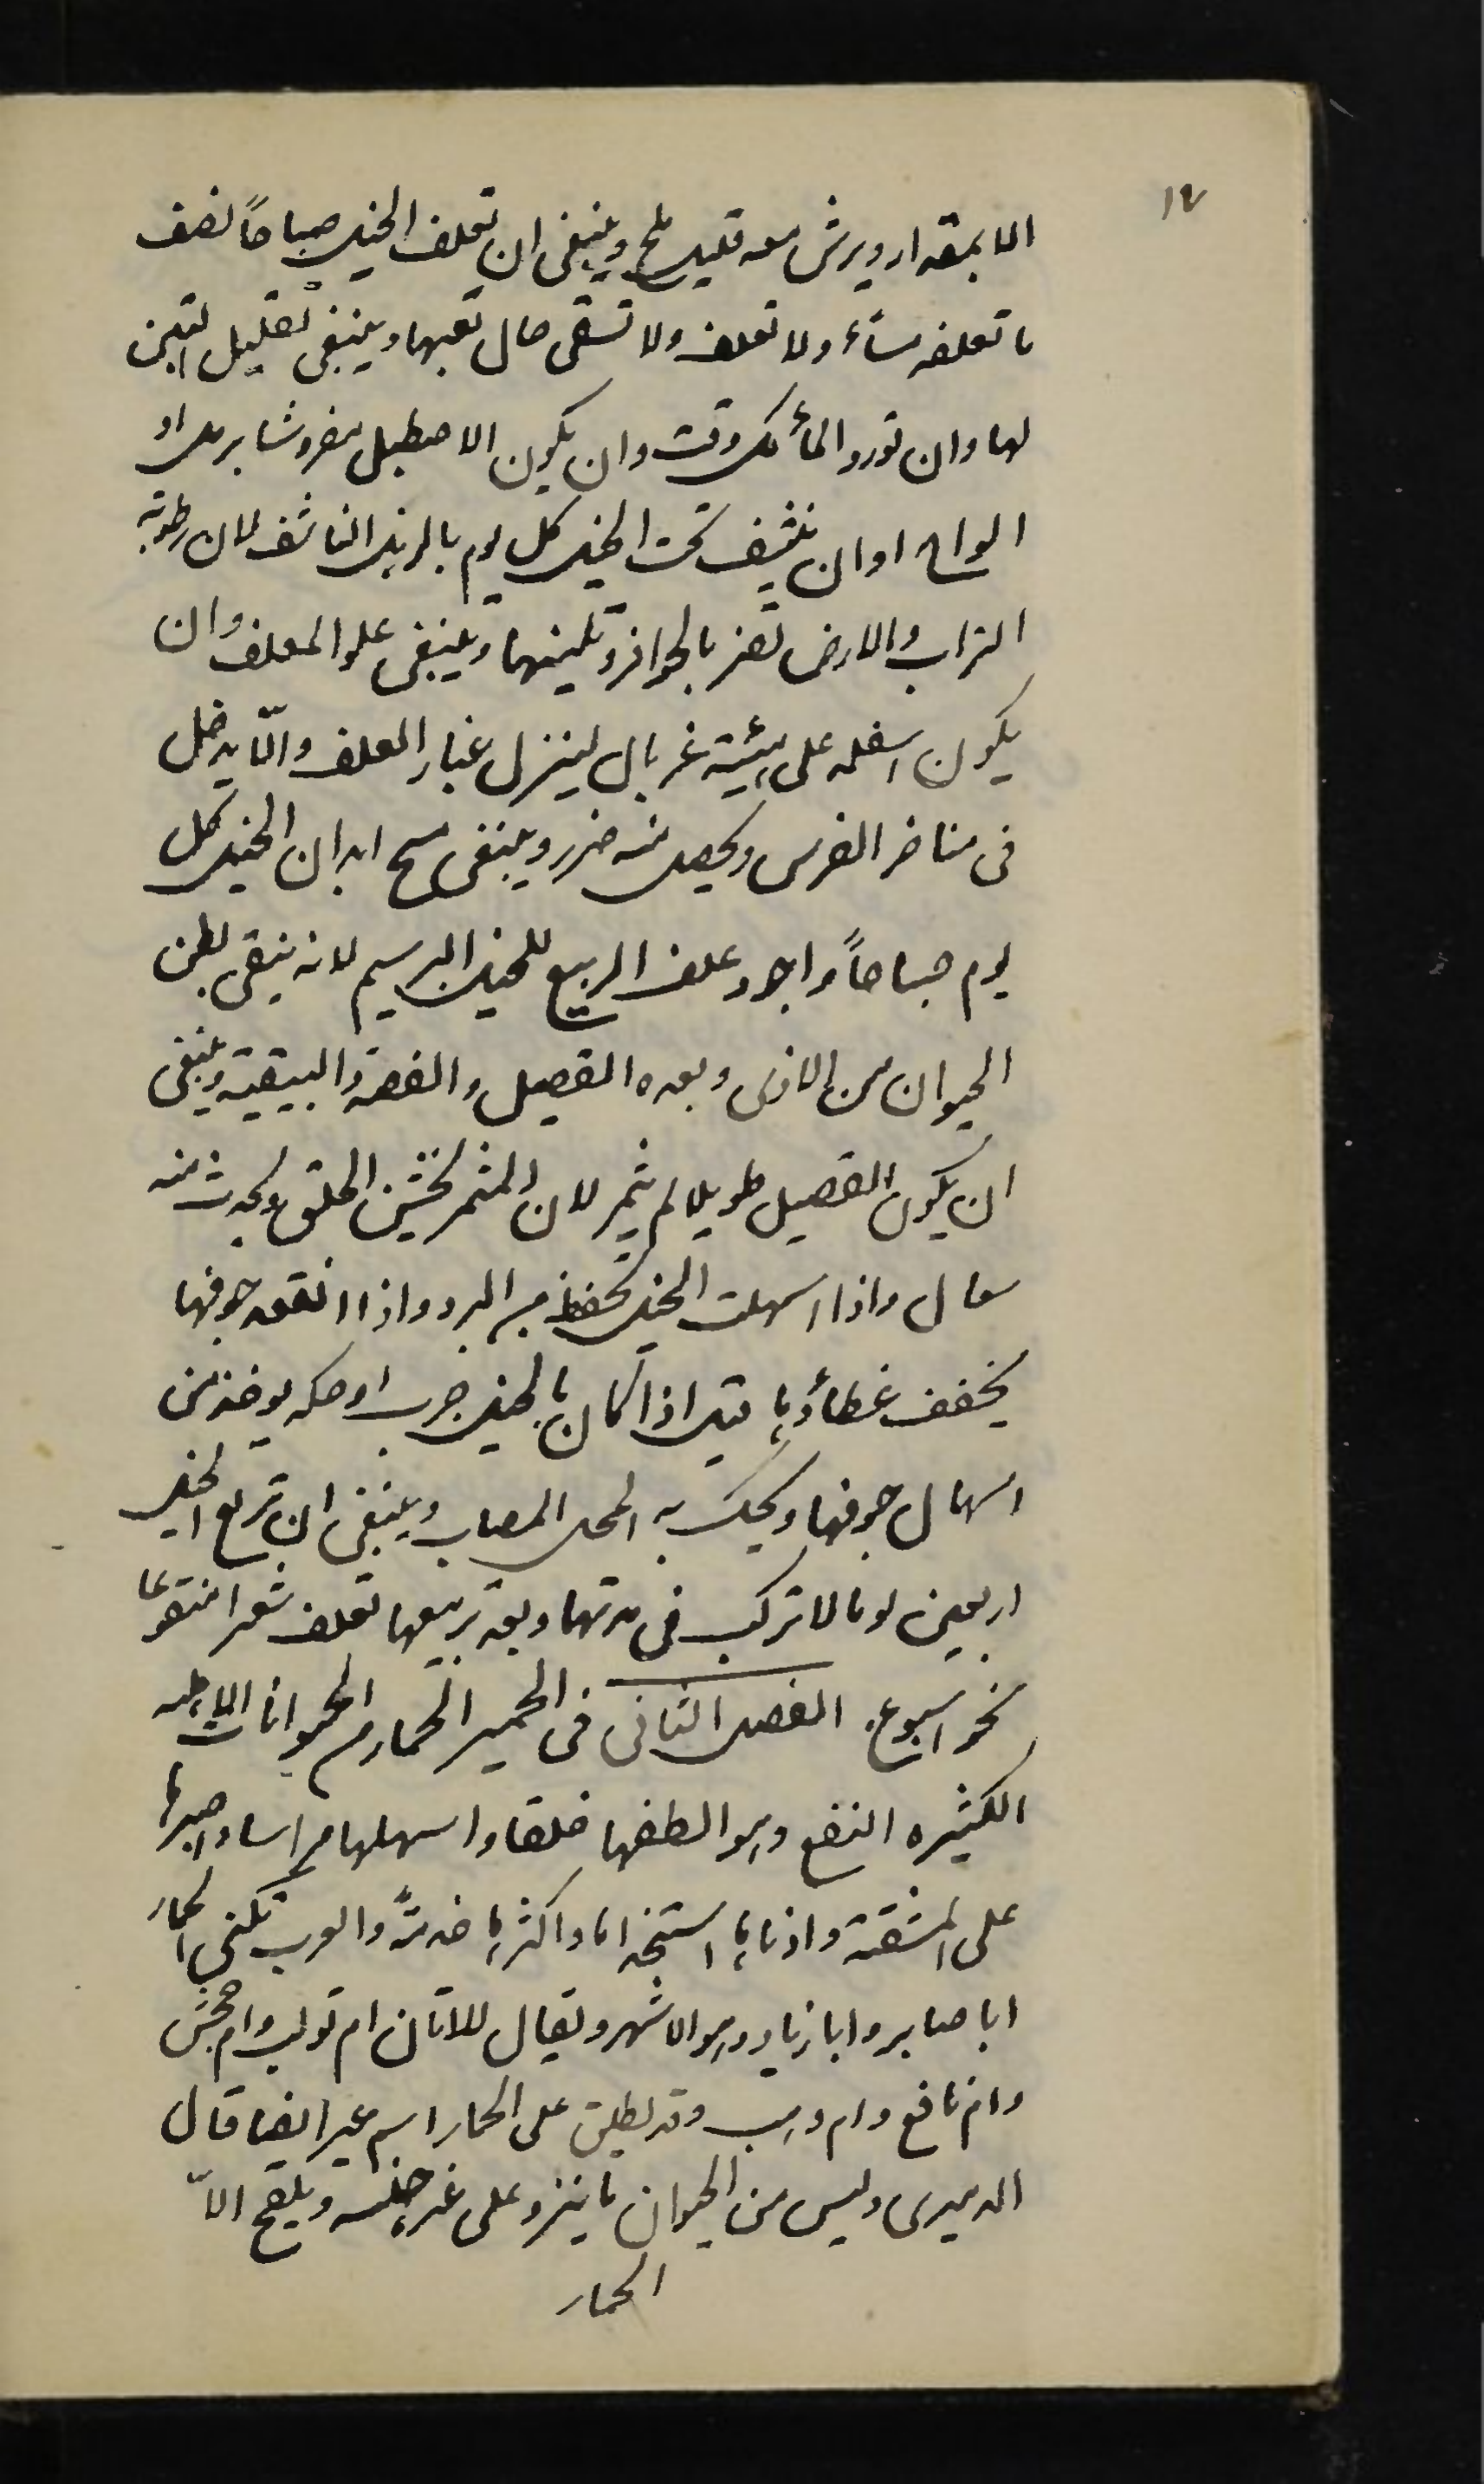 ١٧
الا بمقدار ويرش معه قليل ملح وينبغي ان تعلف الخيل صباحاً نصف
ما تعلفه مساءً ولا تعلف ولا تسقى حال تعبها وينبغي تقليل التبن
لها وان تورد الماء كل وقت وان يكون الاصطبل مفروشا برمل او
الواح او ان ينشف تحت الخيل كل يوم بالزبل الناشف لان رطوبة
التراب والارض تضر بالحوافر وتلينها وينبغي علو المعلف وان
يكون اسفله على هيئة غربال لينزل غبار العلف والّا يدخل
في مناخر الفرس ويحصل منه ضرر وينبغي مسح ابدان الخيل كل
يوم صباحاً واجود علف الربيع للخيل البرسيم لانه ينقي بطن
الحيوان من الاذى وبعده القصيل والفصة والبيقية وينبغي
ان يكون القصيل طويلا لم يثمر لان المثمر يخشن الحلق ويحدث منه
سعال واذا اسهلت الخيل تحفظ من البرد واذا انعقد جوفها
يخفف غطاؤها قيل اذا كان بالخيل جرب او حكه يوخذ من
اسهال جوفها ويحك به المحل المصاب وينبغي ان تربع الخيل
اربعين يوما لا تركب في مدتها وبعد تربيعها تعلف شعيرا منقوعا
نحو اسبوع. الفصل الثاني في الحمير الحمار من الحيوانات الاهليه
الكثيره النفع وهو الطفها خلقا واسهلها مراسا واصبرها
على المشقة وادناها استخداما واكثرها خدمةً والعرب تكني الحمار
ابا صابر وابا زياد وهو الاشهر ويقال للاتان ام تولب وام جحش
وام نافع وام وهب وقد يطلق على الحمار اسم عير ايضا قال
الدميري وليس من الحيوان ما ينزو على غير جنسه ويلقح الاّ
الحمار